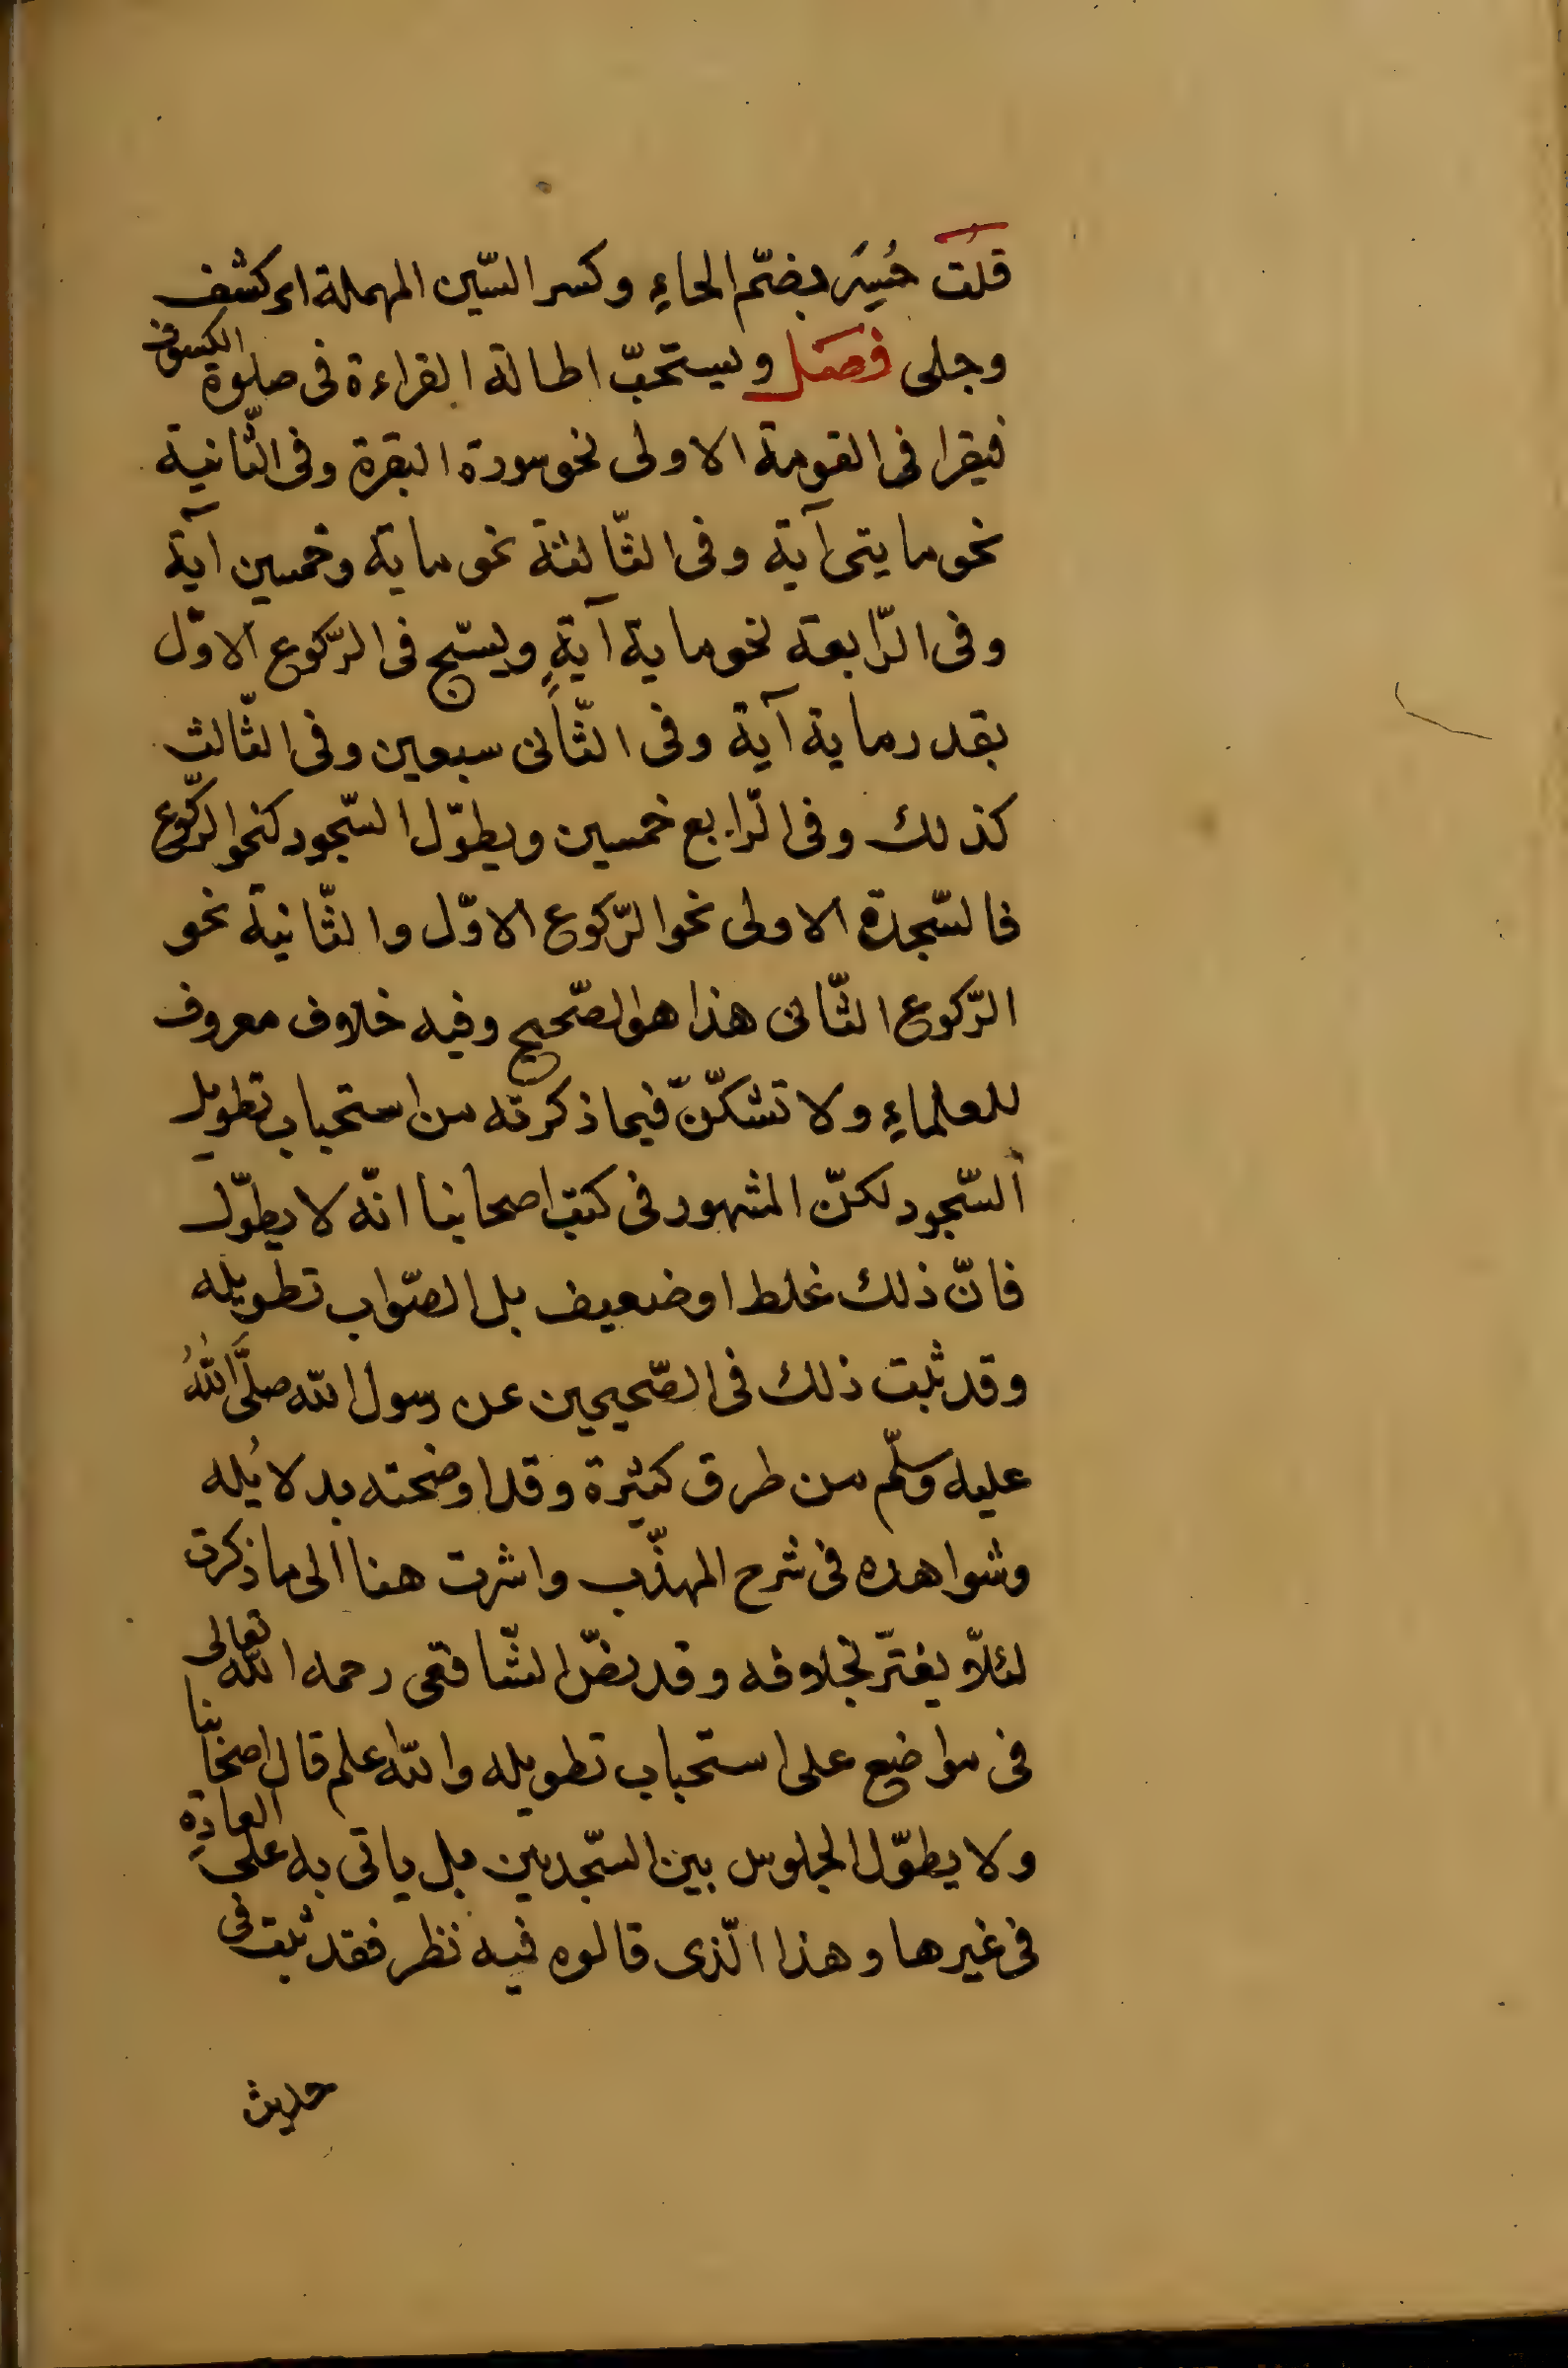 قلت حُسِرَ بضمّ الحاءِ وكسر السّين المهملة اى كشف
وجلى فصل ويستحبّ اطالة القراءة فى صلوة الكسوف
فيقرا فى القومة الاولى نحو سورة البقرة وفى الثّانية
نحو مايتى آية وفى الثّالثة نحو ماية وخمسين آية
وفى الرّابعة نحو ماية آيةٍ ويسبّح فى الرّكوع الاوّل
بقدر ماية آية وفى الثّانى سبعين وفى الثّالث
كذلك وفى الرّابع خمسين ويطوّل السّجود كنحو الرّكوع
فالسّجدة الاولى نحو الرّكوع الاوّل والثّانية نحو
الرّكوع الثّانى هذا هو الصّحيح وفيه خلاف معروف
للعلماءِ ولا تشكّنّ فيما ذكرته من استحباب تطويل
السّجود لكنّ المشهور فى كتب اصحابنا انّه لا يطوّل
فانّ ذلك غلط او ضعيف بل الصّواب تطويله
وقد ثبت ذلك فى الصّحيحين عن رسول الله صلَّى اللهُ
عليه وسلّم من طرق كثيرة وقد اوضحته بدلايُله
وشواهده فى شرح المهذّب واشرت هنا الى ما ذكرت
لئلّا يغترّ بخلافه وقد نصّ الشّافعى رحمه الله تعالى
فى مواضع على استحباب تطويله والله اعلم قال اصحابنا
ولا يطوّل الجلوس بين السّجدين بل ياتى به على العادةِ
فى غيرها وهذا الّذى قالوه فيه نظر فقد ثبت فى
حديث